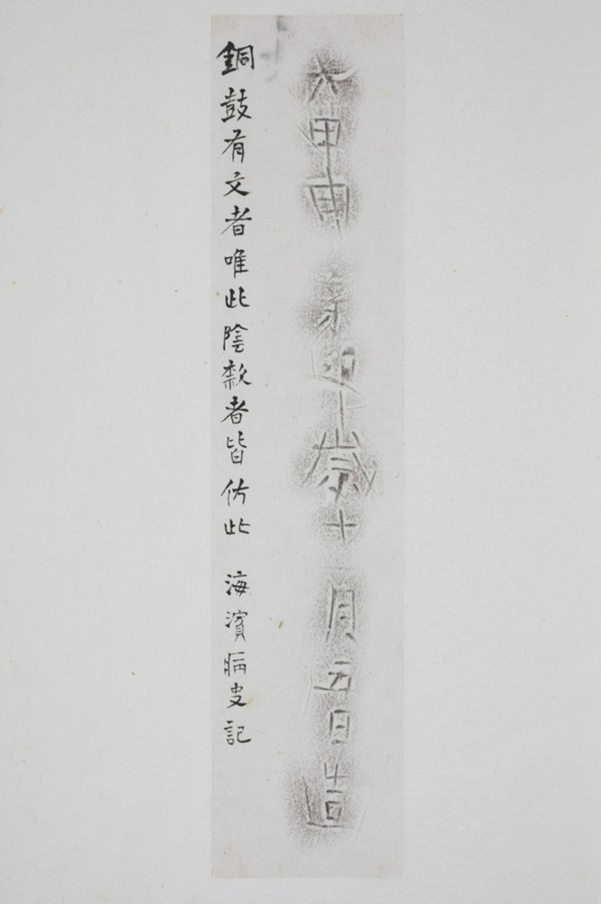 甲歲十月五日造
銅鼓有文者唯此陰款者皆仿此 海濱病史記